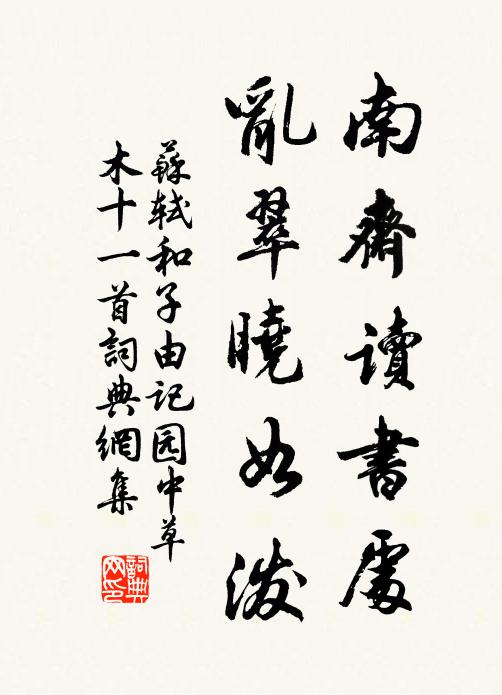 南齋讀書處
亂翠曉如潑
蘇軾和子由记园中草
木十一首詞典網集
詞典
网印